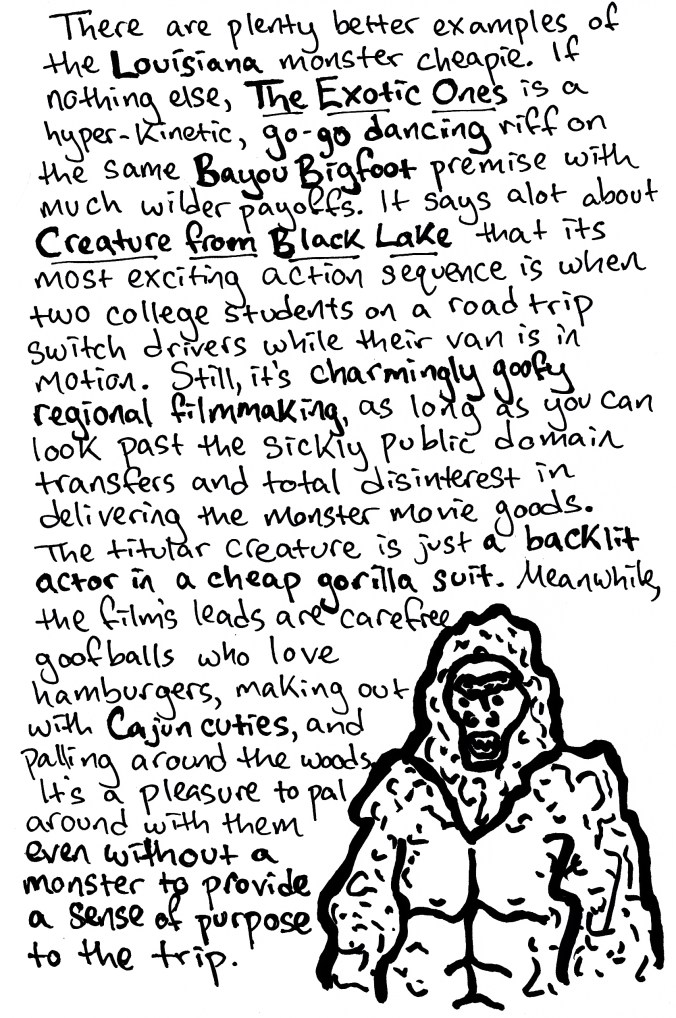 There are plenty better examples of
the Louisiana monster cheapie. If
nothing else, The Exotic Ones is a
hyper-kinetic, go-go dancing riff on
the same Bayou Bigfoot premise with
much wilder payoffs. It says alot about
Creature from Black Lake that its
most exciting action sequence is when
two college students on a road trip
switch drivers while their van is in
motion. Still, it's charmingly goofy
regional filmmaking, as long as you can
look past the sickly public domain
transfers and total disinterest in
delivering the monster movie goods.
The titular creature is just a backlit
actor in a cheap gorilla suit. Meanwhile,
the film's leads are carefree
goofballs who love
hamburgers, making out
with Cajun cuties, and
palling around the woods.
It's a pleasure to pal
around with them
even without a
monster to provide
a sense of purpose
to the trip.